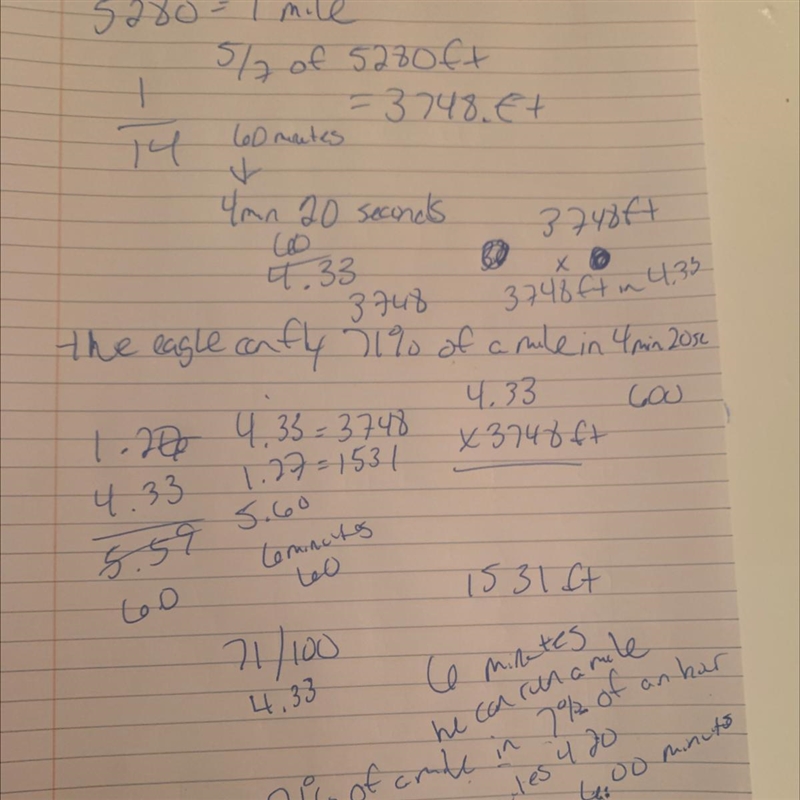 5280 = 1 mile
5/7 of 5280ft
= 3748.ft
1
14
60 minutes
4mn 20 seconds
60
4.33
3748ft
x
3748ft in 4.33
3748
the eagle can fly 71% of a mile in 4min 20sc
4.33
600
x 3748 ft
1.27
4.33
5.59
60
4.33 = 3748
1.27 = 1531
5.60
6 minutes
60
1531 ft
71/100
4.33
6 minutes
he can run a mile
of a mile in 7% of an hour
4 20
6:00 minuts